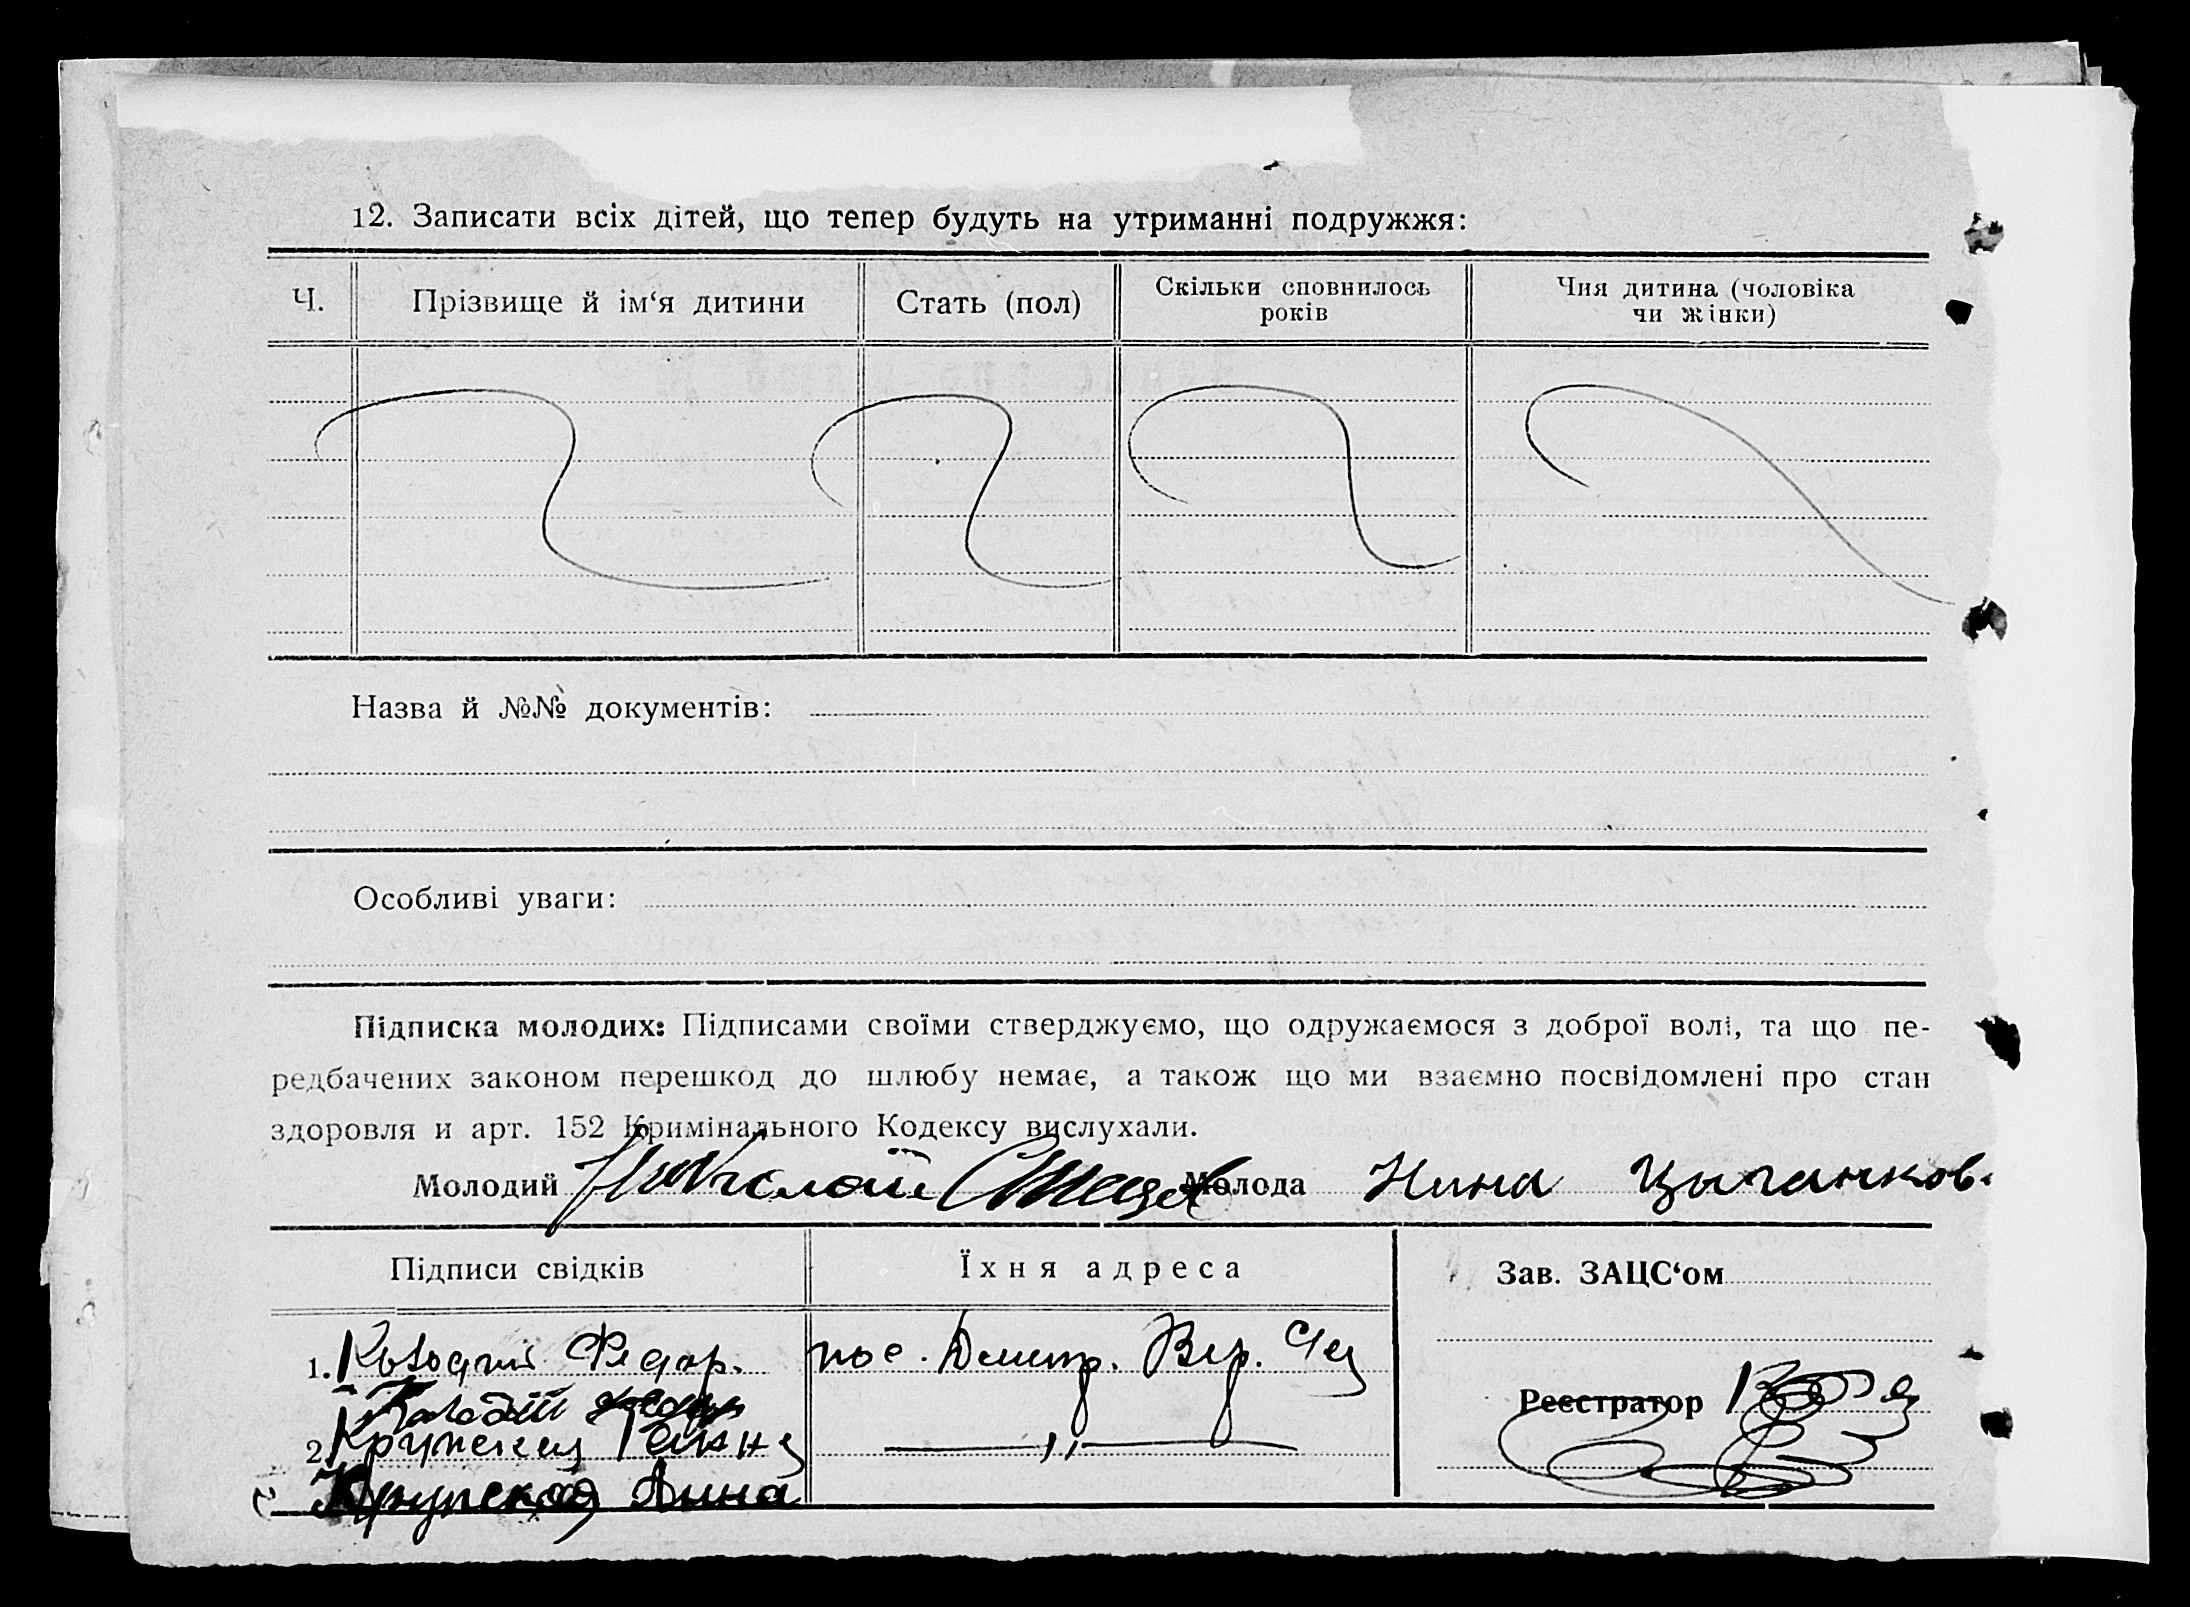 12. Записати всіх дітей, що тепер будуть на утриманні подружжя:
Ч. Прізвище й ім‘я дитини Стать (пол) Скільки сповнилось років Чия дитина (чоловіка чи жінки)
Назва й №№ документів:
Особливі уваги:
Підписка молодих: Підписами своїми стверджуємо, що одружаємося з доброї волі, та що пе-
редбачених законом перешкод до шлюбу немає, а також що ми взаємно посвідомлені про стан
здоровля и арт. 152 Кримінального Кодексу вислухали.
Молодий Николай Молода Нина Цыганков.
Підписи свідків Їхня адреса Зав. ЗАЦС‘ом
1. Федор. пос. Дмитр.
Реєстратор
2. Крупская Ганна —,,—
Крупская Анна